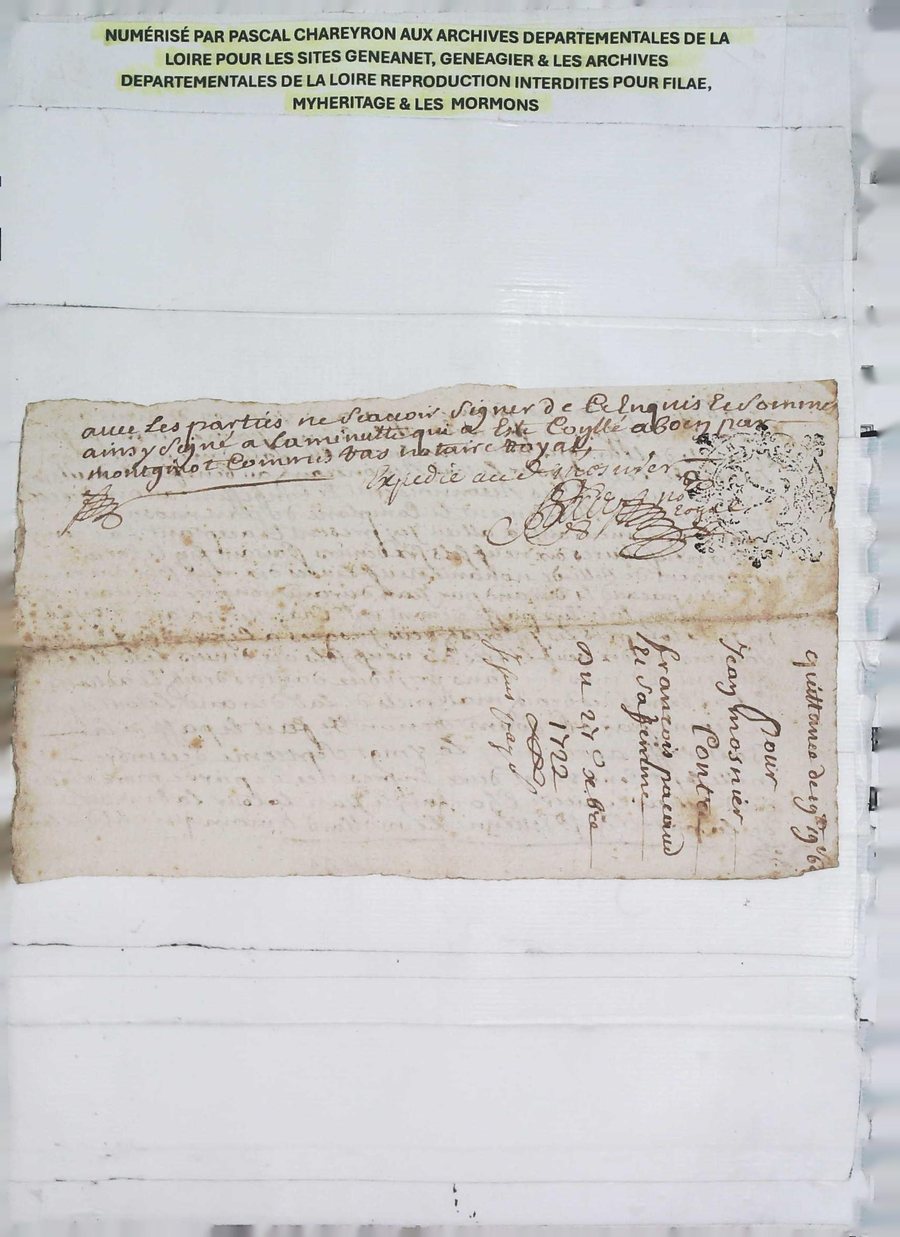 NUMÉRISÉ PAR PASCAL CHAREYRON AUX ARCHIVES DEPARTEMENTALES DE LA
LOIRE POUR LES SITES GENEANET, GENEAGIER & LES ARCHIVES
DEPARTEMENTALES DE LA LOIRE REPRODUCTION INTERDITES POUR FILAE,
MYHERITAGE & LES MORMONS
avec Les parties ne Scavoir Signer de Ce Enquis Et Somme
ainsy Signé a La minutte qui a Esté Coyllé a boen par
montginot Commis Bas notaire Royal,
Expedié aud mosnier
no
royal
quittance de
Pour
Jean mosnier
Contre
françois pacaud
et sa femme
Du 27e xbre
1722